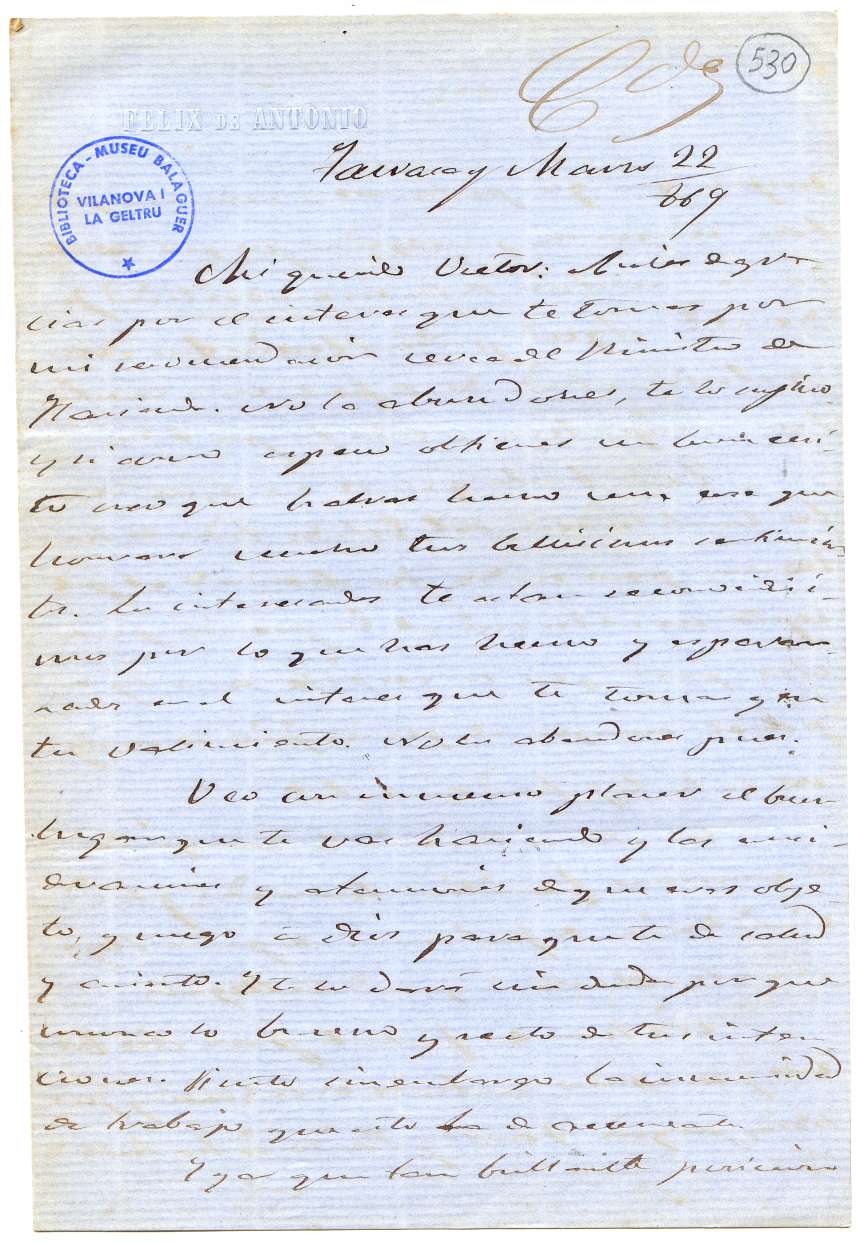 530
FELIX DE ANTONIO
BIBLIOTECA - MUSEU BALAGUER
VILANOVA I
LA GELTRU
Marzo 22
/869
Mi querido Victor: Miles de gra-
cias por el interes que te tomas por
mi recomendacion cerca del Ministro de
Hacienda. No la abandones, te lo suplico
y si como espero obtienes un buen exi-
to creo que habras hecho una cosa que
honrara mucho tus bellisimos sentimien-
tos. Los interesados te estan reconocidisi-
mos por lo que has hecho y esperan-
zados en el interes que te tomas y en
tu valimiento. No los abandones pues.
Veo con inmenso placer el buen
lugar que te vas haciendo y las consi-
deraciones y atenciones de que eres obje-
to, y ruego a Dios para que te de salud
y acierto. Y te lo dará sin duda porque
conozco lo bueno y recto de tus inten-
ciones. Siento sin embargo la inmensidad
de trabajo que esto ha de
Y ya que tan brillante posicion